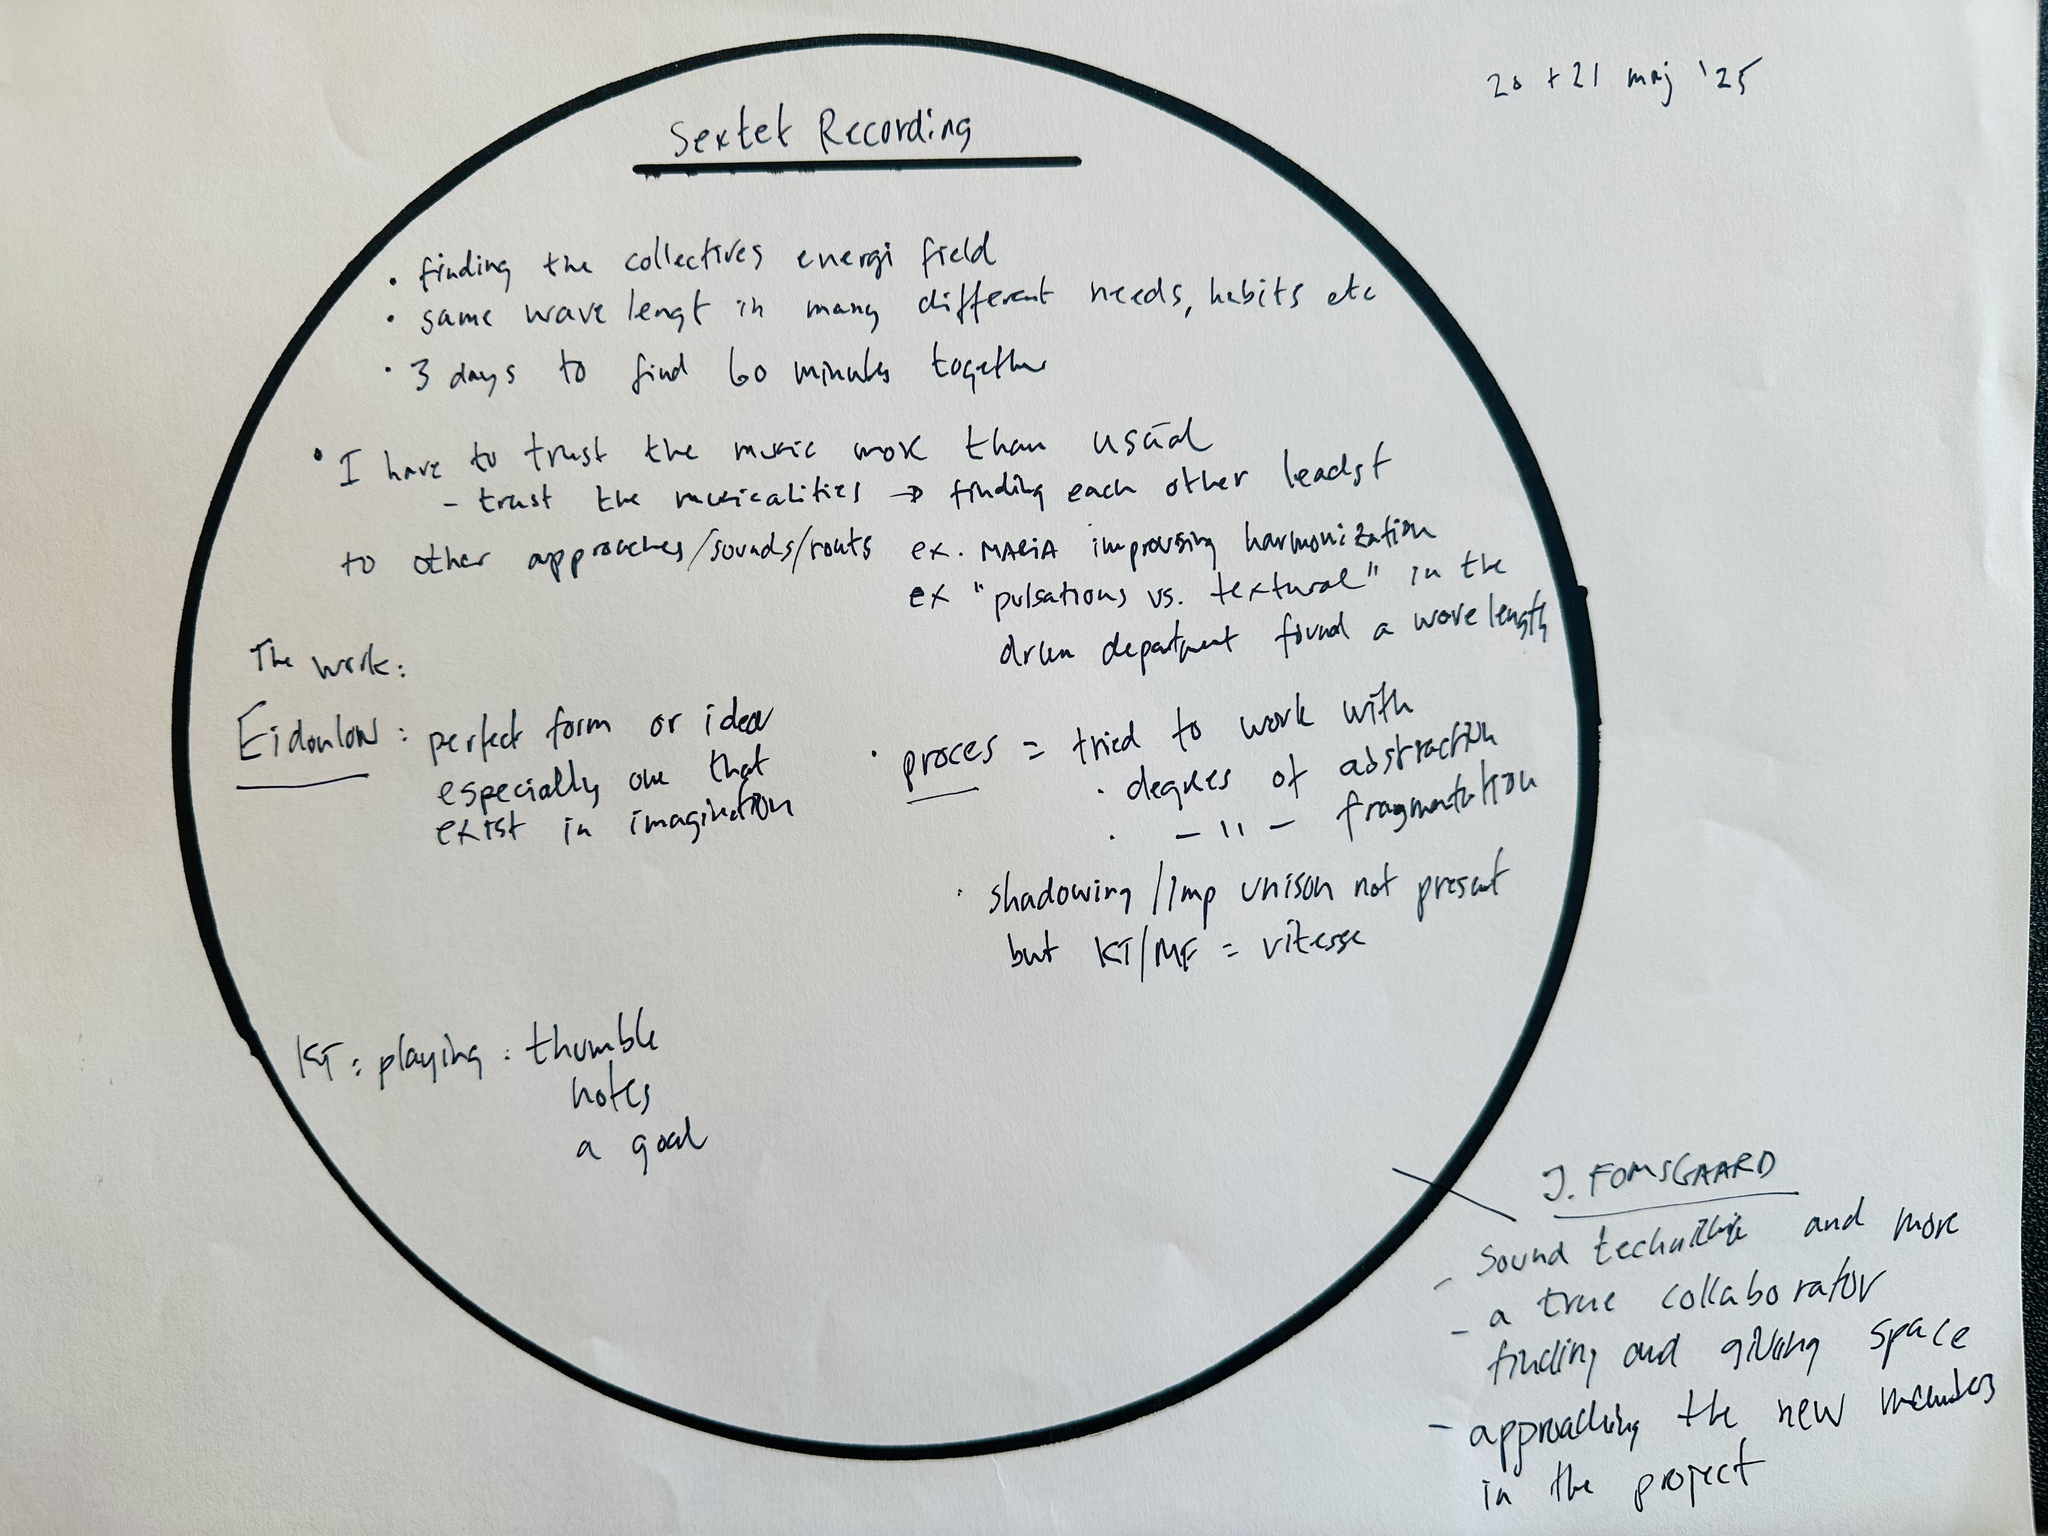 20 + 21 maj '25
Sextet Recording
• finding the collectives energi field
• same wave lengt in many different needs, habits etc
• 3 days to find 60 minutes together
• I have to trust the music more than usual
- trust the musicalities → finding each other leadst
to other approaches/sounds/routs ex. MARIA improvising harmonization
ex "pulsations vs. textural" in the
drum department found a wave length
The work:
Eidoulon: perfect form or idea
especially one that
exist in imagination
• proces = tried to work with
• degrees of abstraction
• - " - fragmentation
• shadowing/Imp unison not present
but KT/MF = vitesse
KT: playing: thumble
notes
a goal
J. FOMSGAARD
- Sound and more
- a true collaborator
finding and giving space
- approaching the new members
in the project